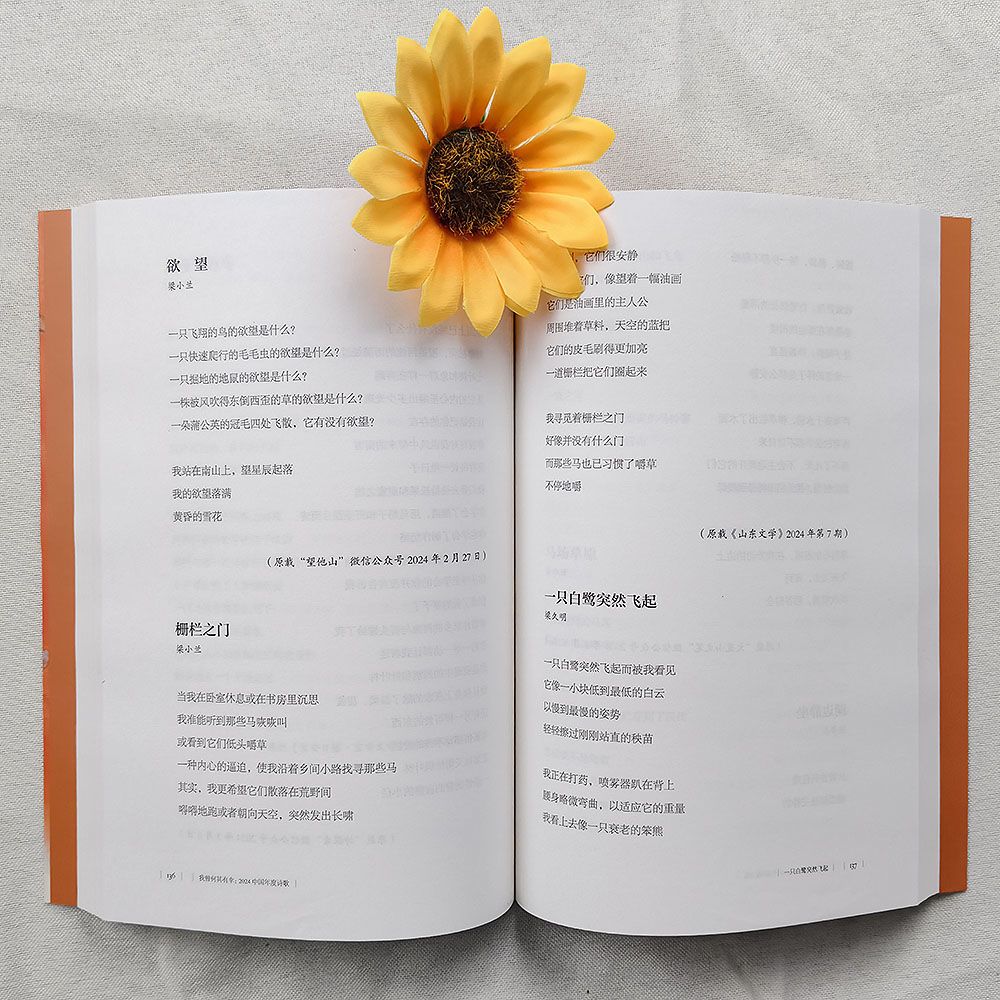 欲 望
梁小兰
一只飞翔的鸟的欲望是什么？
一只快速爬行的毛毛虫的欲望是什么？
一只掘地的地鼠的欲望是什么？
一株被风吹得东倒西歪的草的欲望是什么？
一朵蒲公英的冠毛四处飞散，它有没有欲望？
我站在南山上，望星辰起落
我的欲望落满
黄昏的雪花
（原载“望他山”微信公众号 2024 年 2 月 27 日）
栅栏之门
梁小兰
当我在卧室休息或在书房里沉思
我准能听到那些马咴咴叫
或看到它们低头嚼草
一种内心的逼迫，使我沿着乡间小路找寻那些马
其实，我更希望它们散落在荒野间
嘚嘚地跑或者朝向天空，突然发出长啸
136
我曾何其有幸：2024 中国年度诗歌
，它们很安静
们，像望着一幅油画
它们是油画里的主人公
周围堆着草料，天空的蓝把
它们的皮毛刷得更加亮
一道栅栏把它们圈起来
我寻觅着栅栏之门
好像并没有什么门
而那些马也已习惯了嚼草
不停地嚼
（原载《山东文学》2024 年第 7 期）
一只白鹭突然飞起
梁久明
一只白鹭突然飞起而被我看见
它像一小块低到最低的白云
以慢到最慢的姿势
轻轻擦过刚刚站直的秧苗
我正在打药，喷雾器趴在背上
腰身略微弯曲，以适应它的重量
我看上去像一只衰老的笨熊
一只白鹭突然飞起
137